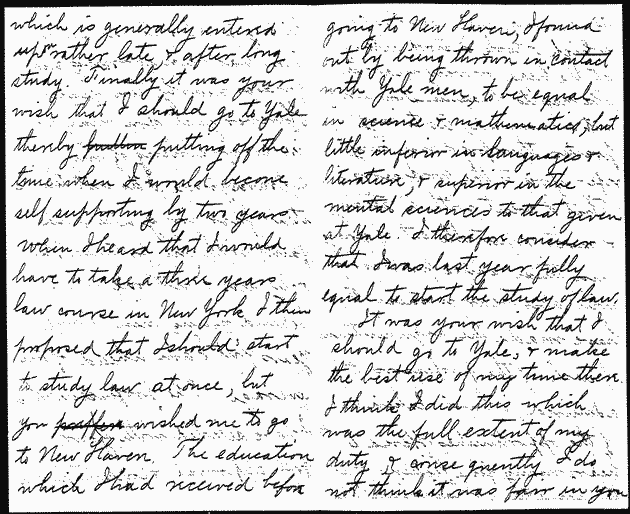 which is generally entered
upon rather late, & after long
study. Finally it was your
wish that I should go to Yale
thereby putting off the
time when I would become
self supporting by two years.
When I heard that I would
have to take a three years
law course in New York I then
proposed that I should start
to study law at once, but
you wished me to go
to New Haven. The education
which I had received before
going to New Haven, I found
out by being thrown in contact
with Yale men, to be equal
in science & mathematics, but
little inferior in languages &
literature, & superior in the
mental sciences to that given
at Yale. I therefore consider
that I was last year fully
equal to start the study of law.
It was your wish that I
should go to Yale, & make
the best use of my time there.
I think I did this which
was the full extent of my
duty & consequently I do
not think it was fair in you